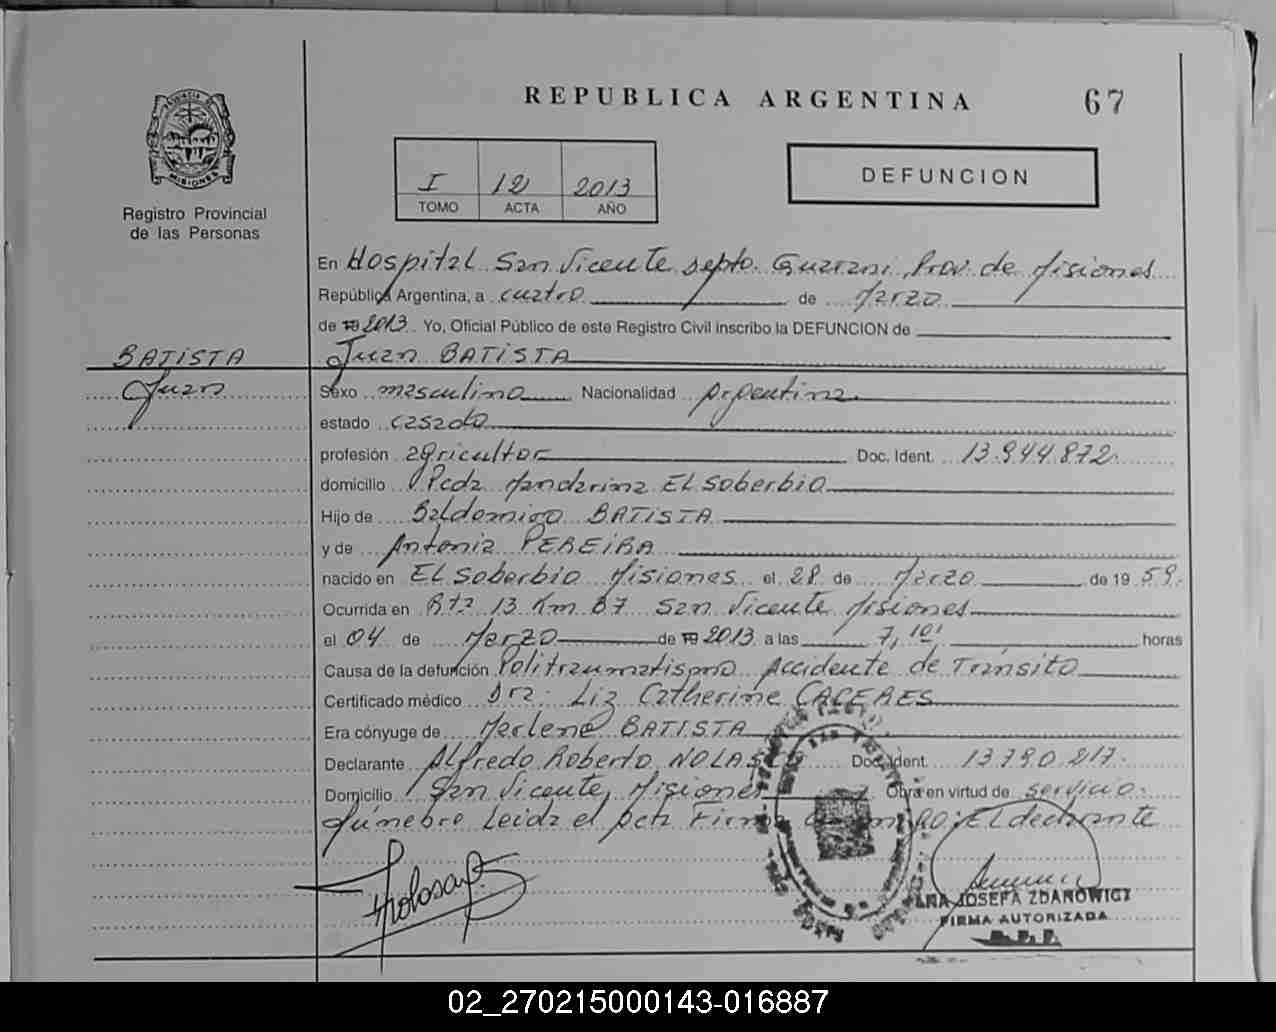 REPUBLICA ARGENTINA
67
PROVINCIA DE MISIONES
Registro Provincial
de las Personas
I 12 2013
TOMO ACTA AÑO
DEFUNCION
En Hospital San Vicente Depto. Guarani, Prov. de Misiones
República Argentina, a cuatro de Marzo
de 19 2013. Yo, Oficial Público de este Registro Civil inscribo la DEFUNCION de
BATISTA
Juan BATISTA
Juan
Sexo masculino Nacionalidad Argentina
estado casado
profesión agricultor Doc. Ident. 13.944.872.
domicilio Pcda Mandarina El Soberbio
Hijo de Baldomiro BATISTA
y de Antonia PEREIRA
nacido en El Soberbio Misiones el 28 de Marzo de 19 59.
Ocurrida en Rta 13 Km 37 San Vicente Misiones
el 04 de Marzo de 19 2013 a las 7,10' horas
Causa de la defunción Politraumatismo Accidente de Transito
Certificado médico Dra. Liz Catherine CACERES
Era cónyuge de Marlene BATISTA
Declarante Alfredo Roberto NOLASCO Doc. Ident. 13.790.217.
Domicilio San Vicente, Misiones Obra en virtud de servicio
funebre Leida el acta Firma El declarante
ANA JOSEFA ZDANOWICZ
FIRMA AUTORIZADA
02_270215000143-016887